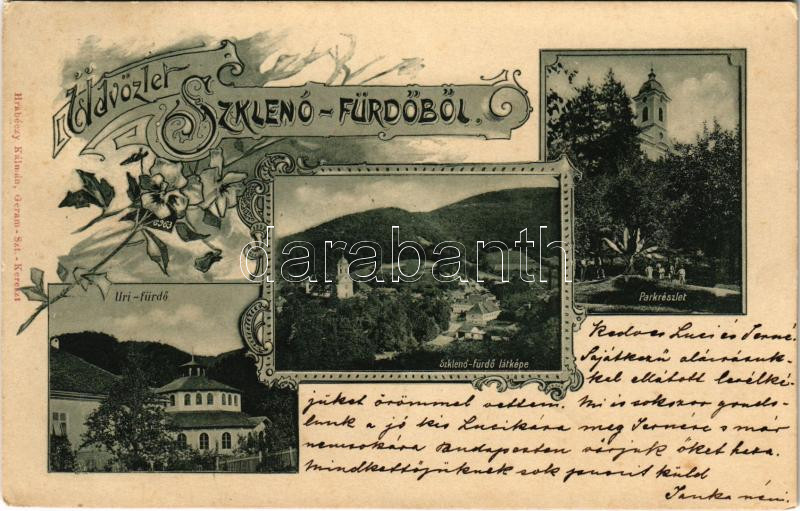 Üdvözlet
SZKLENÓ-FÜRDŐBŐL.
Hrabéczy Kálmán, Geram-Szt.-Kereszt
6963
Uri-fürdő
Szklenó-fürdő látképe
Parkrészlet
darabanth
Kedves Luci és Terné.
Sajátkezű aláirásuk-
kel ellátott levélké-
jüket örömmel vettem. Mi is sokszor gondo-
lunk a jó kis Lucikára meg Ternére s már
nemsokára Budapesten várjuk őket haza.
Mindkettőjüknek sok puszit küld
Janka néni.